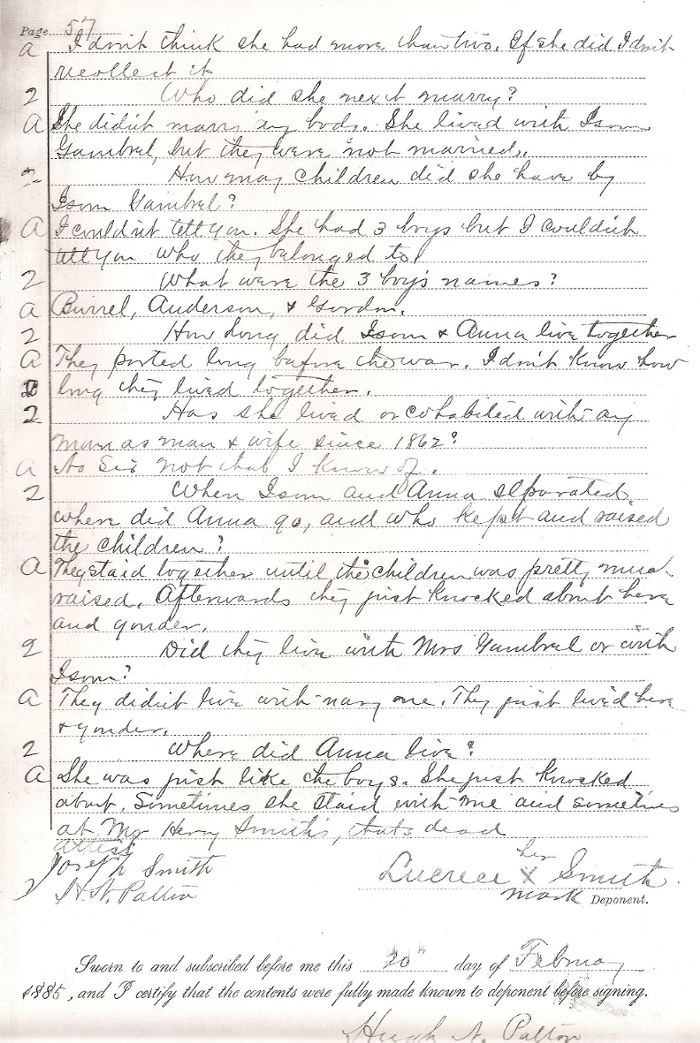 Page 57
A I don't think she had more than two. If she did I don't
recollect it
Q Who did she next marry?
A She didn't marry any body. She lived with Isom
Gambrel, but they were not married.
Q How may children did she have by
Isom Gambrel?
A I couldn't tell you. She had 3 boys but I couldn't
tell you who they belonged to.
Q What were the 3 boy's names?
A Burrel, Anderson, & Gordon.
Q How long did Isom & Anna live together
A They parted long before the war. I don't know how
long they lived together.
Q Has she lived or cohabited with any
man as man & wife since 1862?
A No Sir not that I know of.
Q When Isom and Anna separated,
where did Anna go, and who kept and raised
the children?
A They staid together until the children was pretty much
raised. Afterwards they just knocked about here
and yonder.
Q Did they live with Mrs Gambrel or with
Isom?
A They didn't live with nary one. They just lived here
& yonder.
Q Where did Anna live?
A She was just like the boys. She just knocked
about. Sometimes she staid with me and sometimes
at Mr Henry Smith's, thats dead
Attest
Joseph Smith
H. N. Patton
Lucrece her X mark Smith
Deponent.
Sworn to and subscribed before me this 20" day of February
1885, and I certify that the contents were fully made known to deponent before signing.
Hugh N. Patton